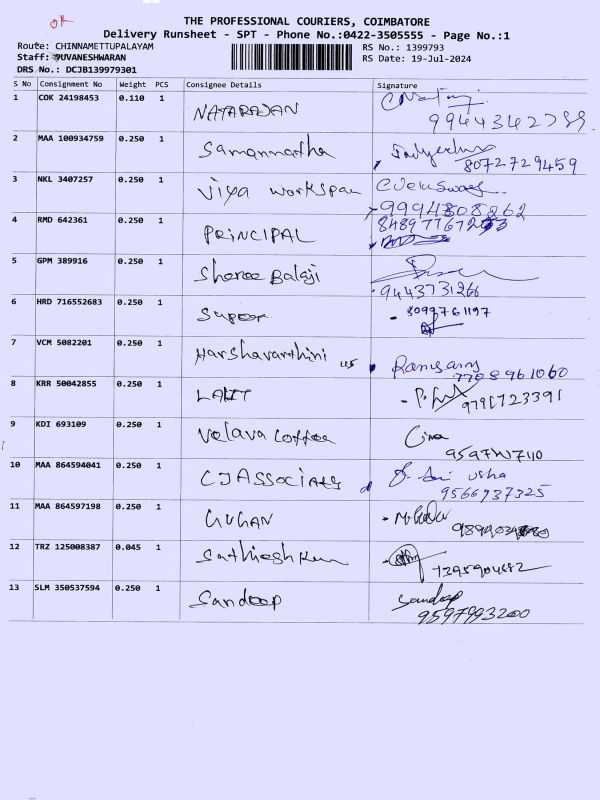 OK
THE PROFESSIONAL COURIERS, COIMBATORE
Delivery Runsheet - SPT - Phone No.:0422-3505555 - Page No.:1
Route: CHINNAMETTUPALAYAM RS No.: 1399793
Staff: BUVANESHWARAN RS Date: 19-Jul-2024
DRS No.: DCJB139979301
S No Consignment No Weight PCS Consignee Details Signature
1 COK 24198453 0.110 1 NATARAJAN
2 MAA 100934759 0.250 1 Samannatha
8072729459
3 NKL 3407257 0.250 1 Viya workspau
9994808862
4 RMD 642361 0.250 1 PRINCIPAL
5 GPM 389916 0.250 1 Sharee Balaji
9443731266
6 HRD 716552683 0.250 1 Super 8099761197
7 VCM 5082201 0.250 1 Harshavarthini
7708961060
8 KRR 50042855 0.250 1 LALIT
9791723391
9 KDI 693109 0.250 1 Velava Coffee
10 MAA 864594041 0.250 1 CJ ASSociates usha
9566937325
11 MAA 864597198 0.250 1 GUGAN
12 TRZ 125008387 0.045 1 Sathiesh Kum
7395904682
13 SLM 350537594 0.250 1 Sandeep Sandeep
9597993200